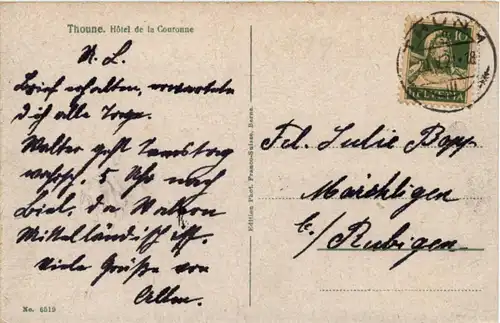 Thoune. Hôtel de la Couronne
M. L.
Brief erhalten, erwartete
Dich alle Tage.
Walter geht Samstag
5 Uhr nach
Biel, da
Mittelländisch ist.
Viele Grüße von
Edition Phot. Franco-Suisse, Berne.
No. 6519
THUN 1
10
HELVETIA
Frl. Julie Bopp
Märchligen
b/ Rubigen